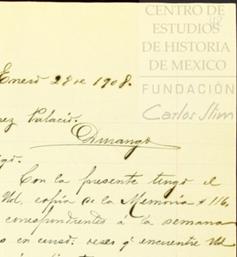 CENTRO DE
ESTUDIOS
DE HISTORIA
DE MEXICO
FUNDACIÓN
Carlos Slim
Enero 28 de 1908.
Palacio.
Durango
Con la presente tengo el
Vd, copia de la Memoria # 116
correspondientes á la semana
en curso: reses q' encuentre Vd